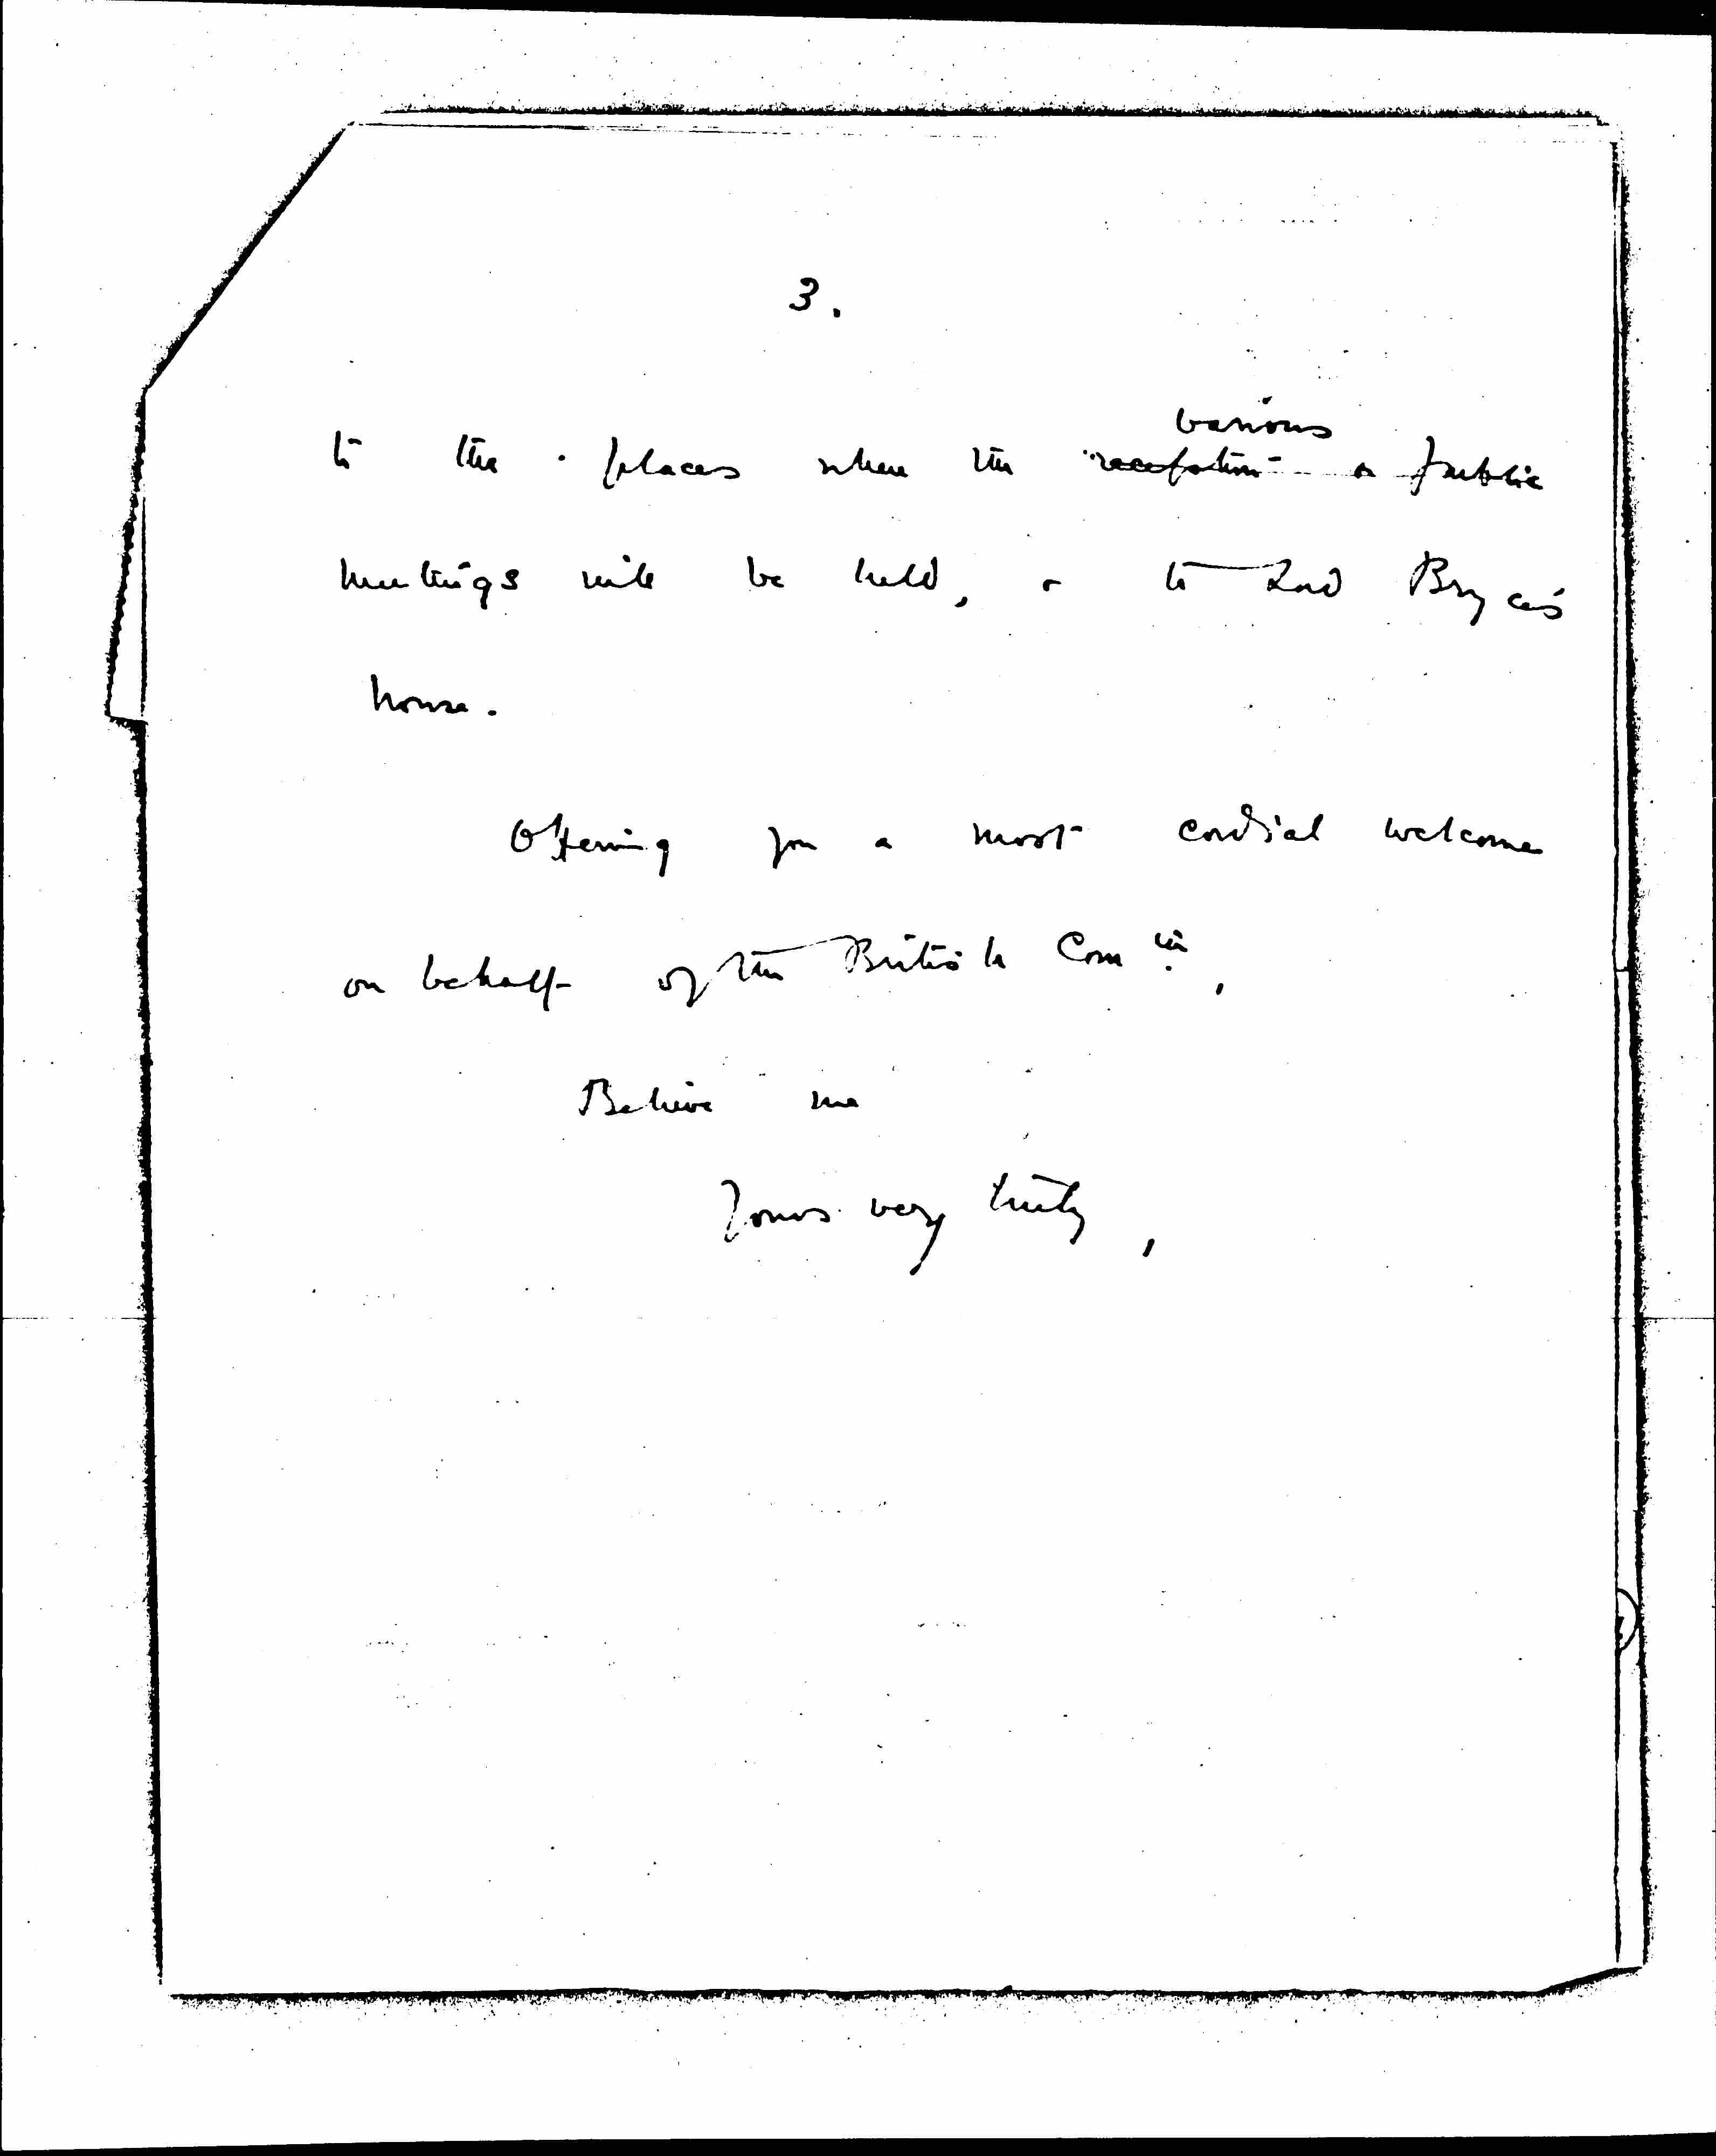 3.
various
to the places where the reception or public
meetings will be held, or to Lord Bryce's
house.
Offering you a most cordial welcome
on behalf of the British Comtee,
Believe me
Yours very truly,